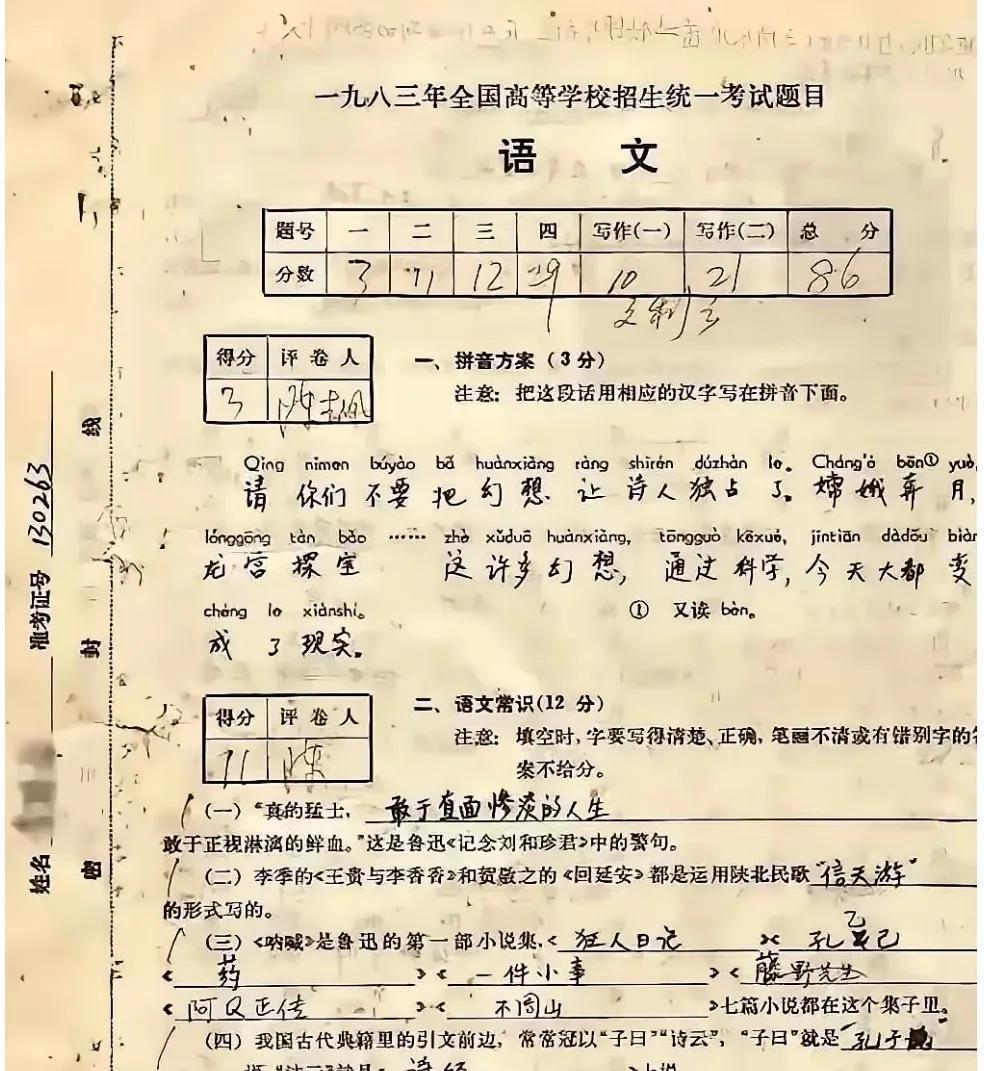 一九八三年全国高等学校招生统一考试题目
语 文
题号 一 二 三 四 写作(一) 写作(二) 总 分
分数 3 11 12 29 10 21 86
得分 评卷人
3
一、拼音方案（3分）
注意：把这段话用相应的汉字写在拼音下面。
Qǐng nǐmen búyào bǎ huànxiǎng ràng shīrén dúzhàn le。 Cháng'é bēn① yuè,
请 你们 不要 把 幻想 让 诗人 独占 了。嫦娥 奔 月,
lónggōng tàn bǎo …… zhè xǔduō huànxiǎng, tōngguò kēxué, jīntiān dàdōu biàn
龙宫 探 宝 这 许多 幻想, 通过 科学, 今天 大都 变
chéng le xiànshí。 ① 又读 bèn。
成 了 现实。
得分 评卷人
11 陈
二、语文常识(12 分)
注意： 填空时,字要写得清楚、正确,笔画不清或有错别字的答
案不给分。
(一) “真的猛士, 敢于直面惨淡的人生
敢于正视淋漓的鲜血。”这是鲁迅《记念刘和珍君》中的警句。
(二) 李季的《王贵与李香香》和贺敬之的《回延安》都是运用陕北民歌“信天游”
的形式写的。
(三)《呐喊》是鲁迅的第一部小说集,《 狂人日记 》《 孔乙己
《 药 》《 一件小事 》《 藤野先生
《 阿Q正传 》《 不周山 》七篇小说都在这个集子里。
(四) 我国古代典籍里的引文前边, 常常冠以“子曰”“诗云”, “子曰”就是 孔子
诗经
准考证号 130263
姓名
密 封 线